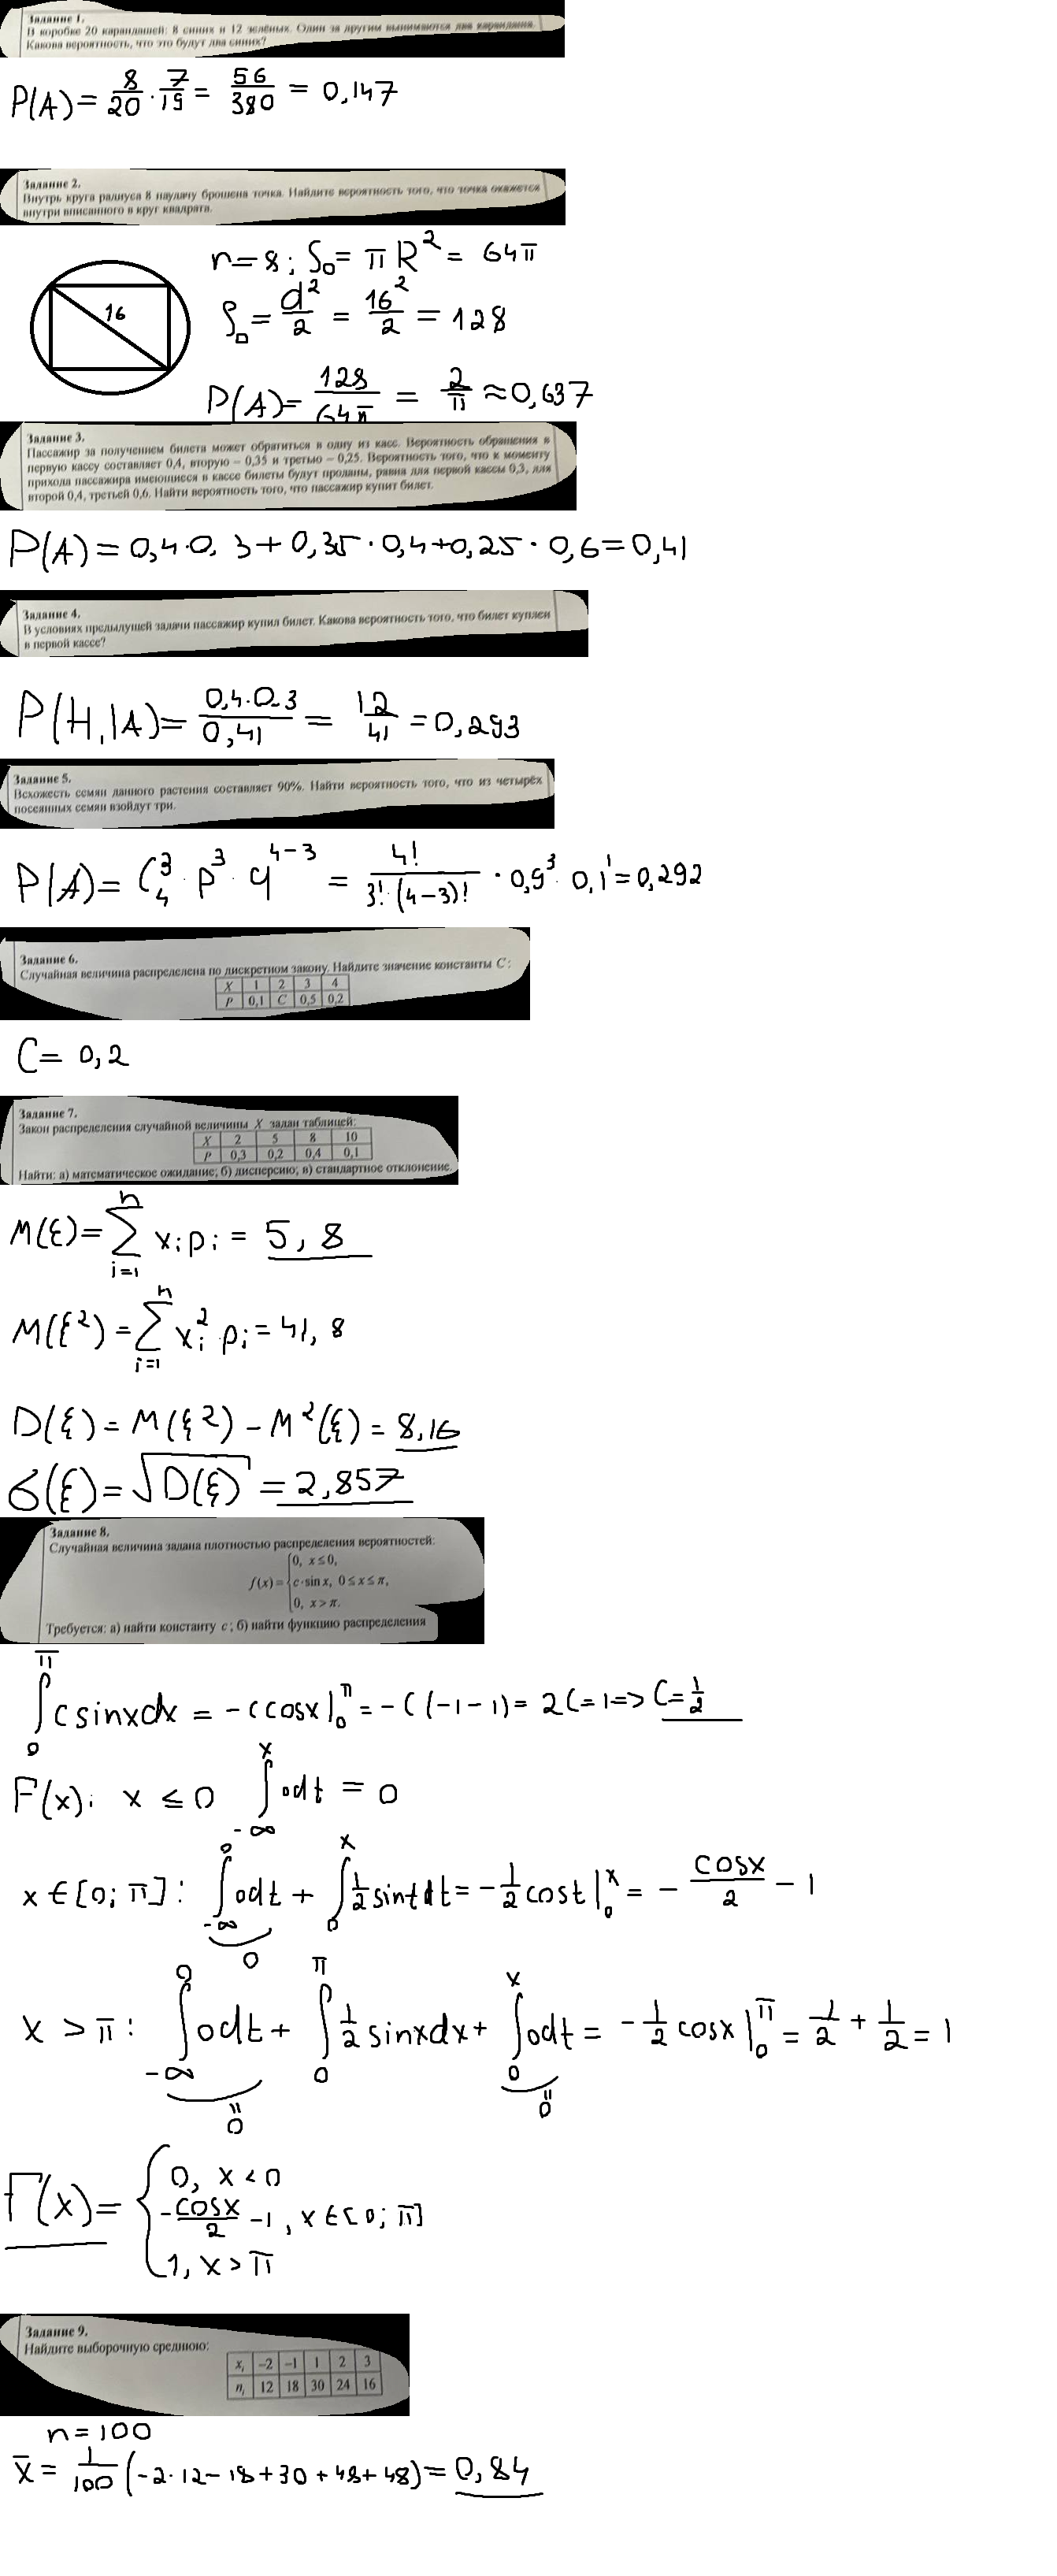 Задание 1.
В коробке 20 карандашей: 8 синих и 12 зелёных. Один за другим вынимаются два карандаша.
Какова вероятность, что это будут два синих?
P(A) = 8/20 · 7/19 = 56/380 = 0,147
Задание 2.
Внутрь круга радиуса 8 наудачу брошена точка. Найдите вероятность того, что точка окажется
внутри вписанного в круг квадрата.
n=8; S₀ = πR² = 64π
16
S□ = d²/2 = 16²/2 = 128
P(A) = 128/64π = 2/π ≈ 0,637
Задание 3.
Пассажир за получением билета может обратиться в одну из касс. Вероятность обращения в
первую кассу составляет 0,4, вторую – 0,35 и третью – 0,25. Вероятность того, что к моменту
прихода пассажира имеющиеся в кассе билеты будут проданы, равна для первой кассы 0,3, для
второй 0,4, третьей 0,6. Найти вероятность того, что пассажир купит билет.
P(A) = 0,4·0,3 + 0,35·0,4 + 0,25·0,6 = 0,41
Задание 4.
В условиях предыдущей задачи пассажир купил билет. Какова вероятность того, что билет куплен
в первой кассе?
P(H₁|A) = 0,4·0.3/0,41 = 12/41 = 0,293
Задание 5.
Всхожесть семян данного растения составляет 90%. Найти вероятность того, что из четырёх
посеянных семян взойдут три.
P(A) = C₄³ · p³ · q⁴⁻³ = 4!/3!·(4−3)! · 0,9³ · 0,1¹ = 0,292
Задание 6.
Случайная величина распределена по дискретном закону. Найдите значение константы C:
X 1 2 3 4
P 0,1 C 0,5 0,2
C = 0,2
Задание 7.
Закон распределения случайной величины X задан таблицей:
X 2 5 8 10
P 0,3 0,2 0,4 0,1
Найти: а) математическое ожидание; б) дисперсию; в) стандартное отклонение.
M(ξ) = ∑ᵢ₌₁ⁿ xᵢpᵢ = 5,8
M(ξ²) = ∑ᵢ₌₁ⁿ xᵢ²·pᵢ = 41,8
D(ξ) = M(ξ²) − M²(ξ) = 8,16
σ(ξ) = √D(ξ) = 2,857
Задание 8.
Случайная величина задана плотностью распределения вероятностей:
0, x ≤ 0,
f(x) = { c·sin x, 0 ≤ x ≤ π,
0, x > π.
Требуется: а) найти константу c; б) найти функцию распределения
∫₀^π c sinx dx = −c cosx |₀^π = −c(−1−1) = 2C = 1 => C = 1/2
F(x): x ≤ 0 ∫₋∞^x 0dt = 0
x ∈ [0; π]: ∫₋∞^0 0dt + ∫₀^x 1/2 sint dt = −1/2 cost |₀^x = − cosx/2 − 1
0
x > π: ∫₋∞^0 0dt + ∫₀^π 1/2 sinx dx + ∫₀^x 0dt = −1/2 cosx |₀^π = 1/2 + 1/2 = 1
=0 =0
0, x < 0
F(x) = { −cosx/2 −1, x ∈ [0; π]
1, x > π
Задание 9.
Найдите выборочную среднюю:
xᵢ −2 −1 1 2 3
nᵢ 12 18 30 24 16
n = 100
x̄ = 1/100 (−2·12−18+30+48+48) = 0,84